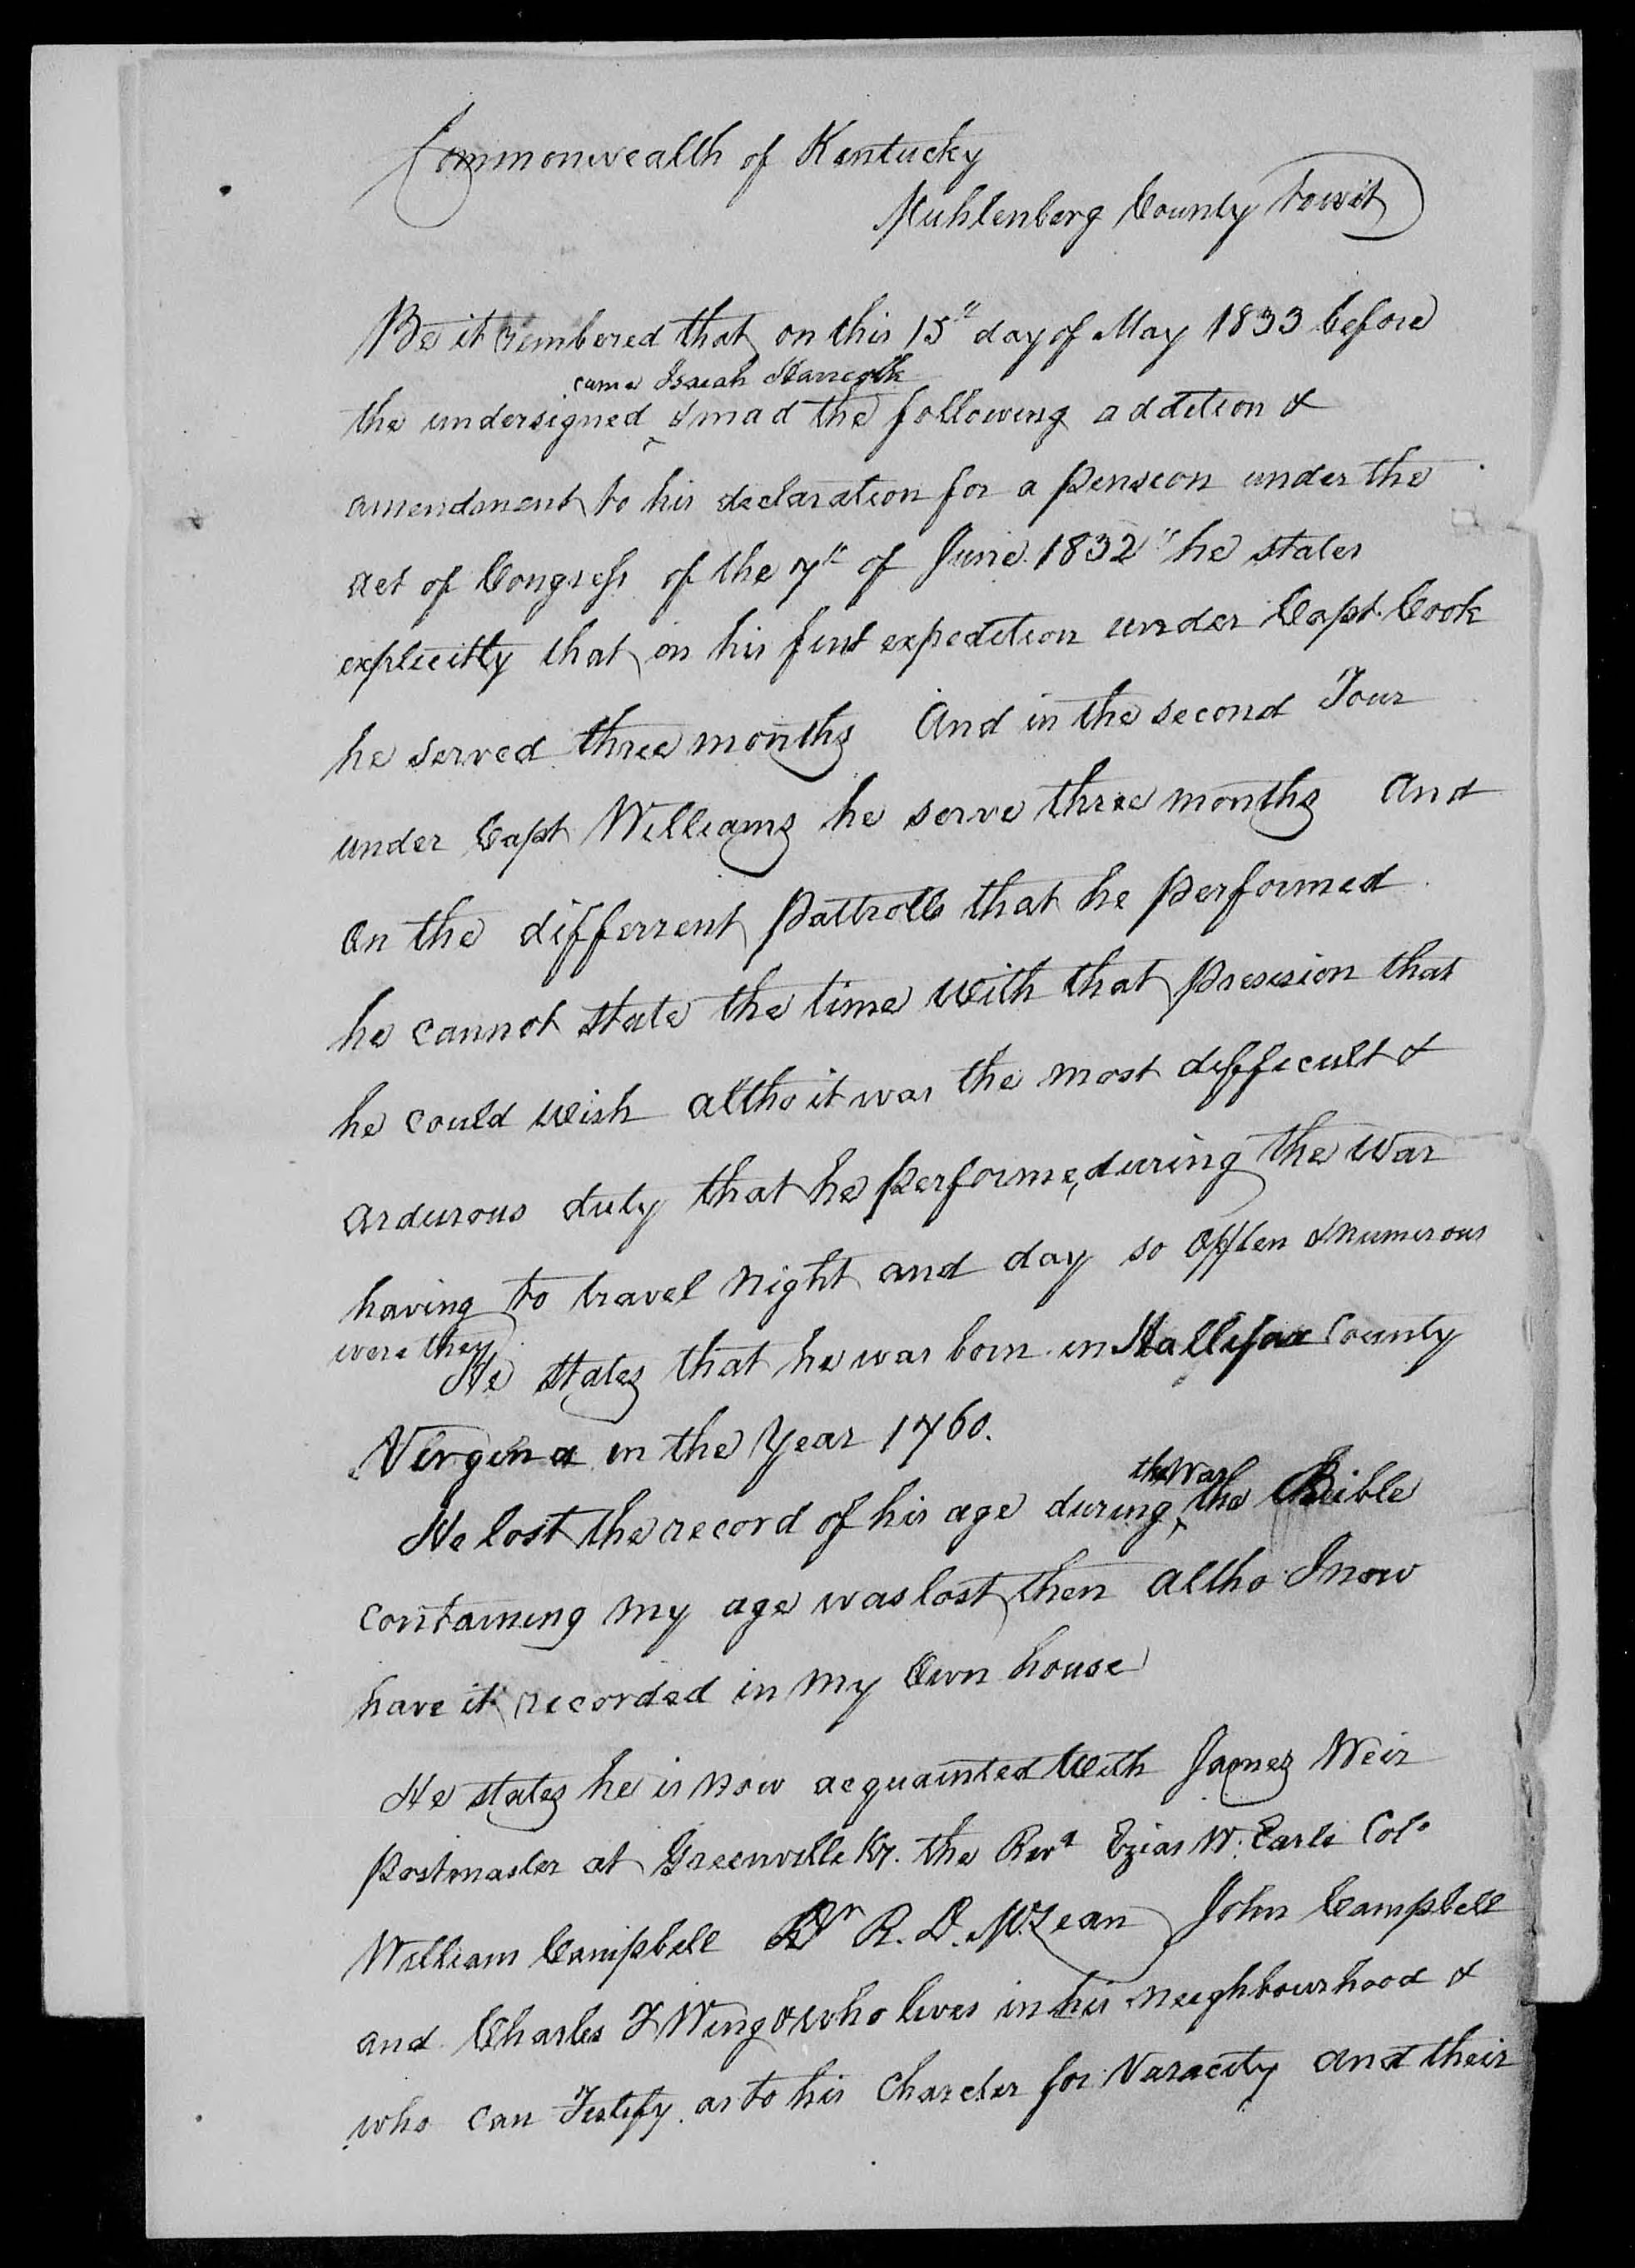 Commonwealth of Kentucky
Muhlenberg County towit
Be it rembered that on this 15" day of May 1833 before
came Isaiah Hancock
the undersigned & mad the following addition &
amendment to his declaration for a pension under the
act of Congress of the 7th of June 1832" he states
explicitly that on his first expedition under Capt. Cook
he served three months And in the second Tour
under Capt Williams he serve three months And
On the differrent pattrolls that he performed
he cannot state the time with that presesion that
he could wish altho it was the most difficult &
ardurous duty that he performe, during the war
having to travel night and day so offten & numerous
were they
He states that he was born in Hallifax County
Virgina in the year 1760.
the War
He lost the record of his age during the Bible
containing my age was lost then altho I now
have it recorded in my Own house
He states he is now acquainted with James Weir
postmaster at Greenville Ky. the Revd Ezias W. Earle Colo
William Campbell Dr R. D. McLean John Campbell
and Charles F Wing & who lives in his neighbourhood &
who can Testify as to his Charcter for Varacity and their